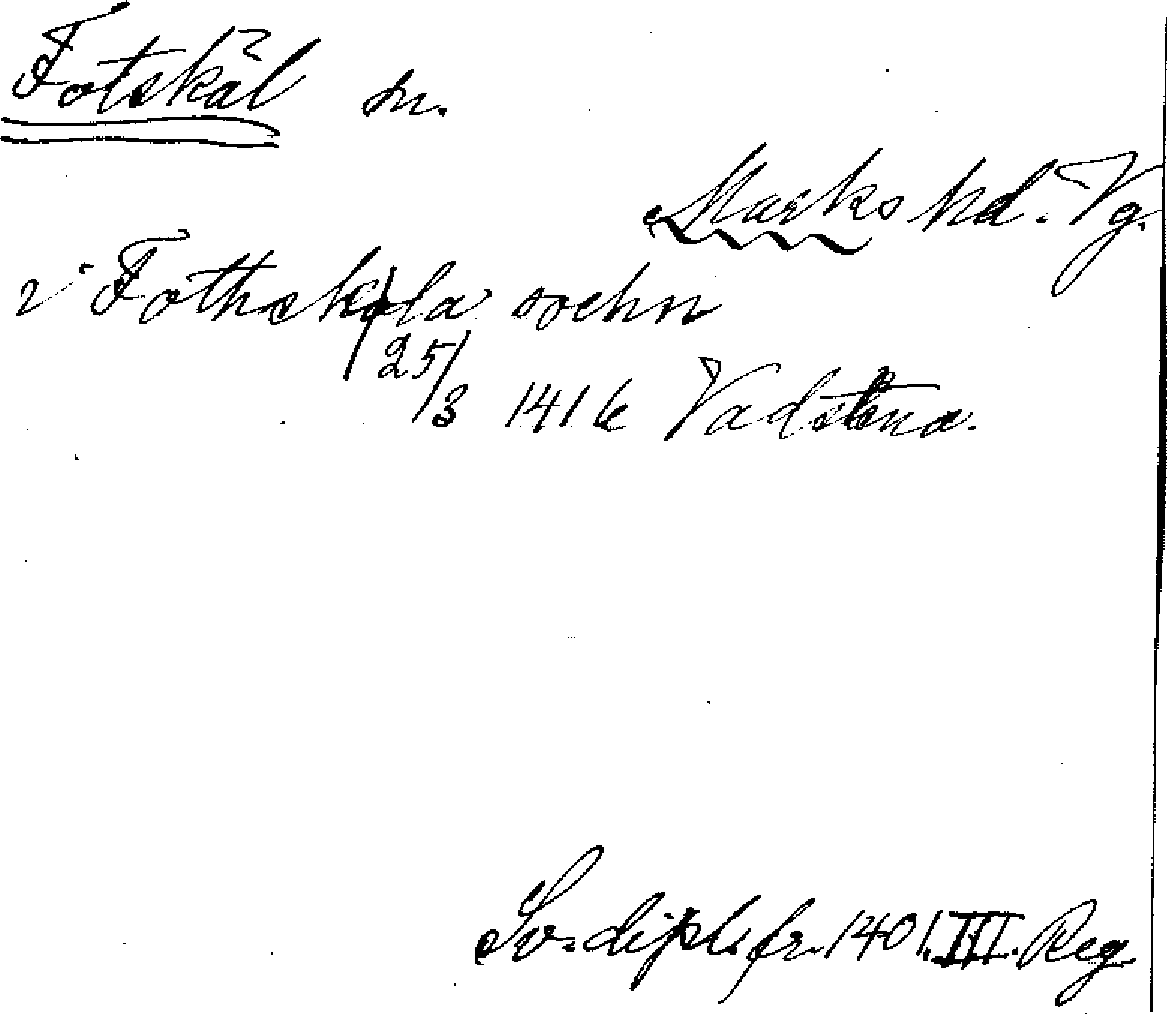 Fotskäl sn.
Marks hd. Vg.
i Fothskøla sochn
25/3 1416 Vadstena.
Sv. dipl. fr. 1401. III. Reg.